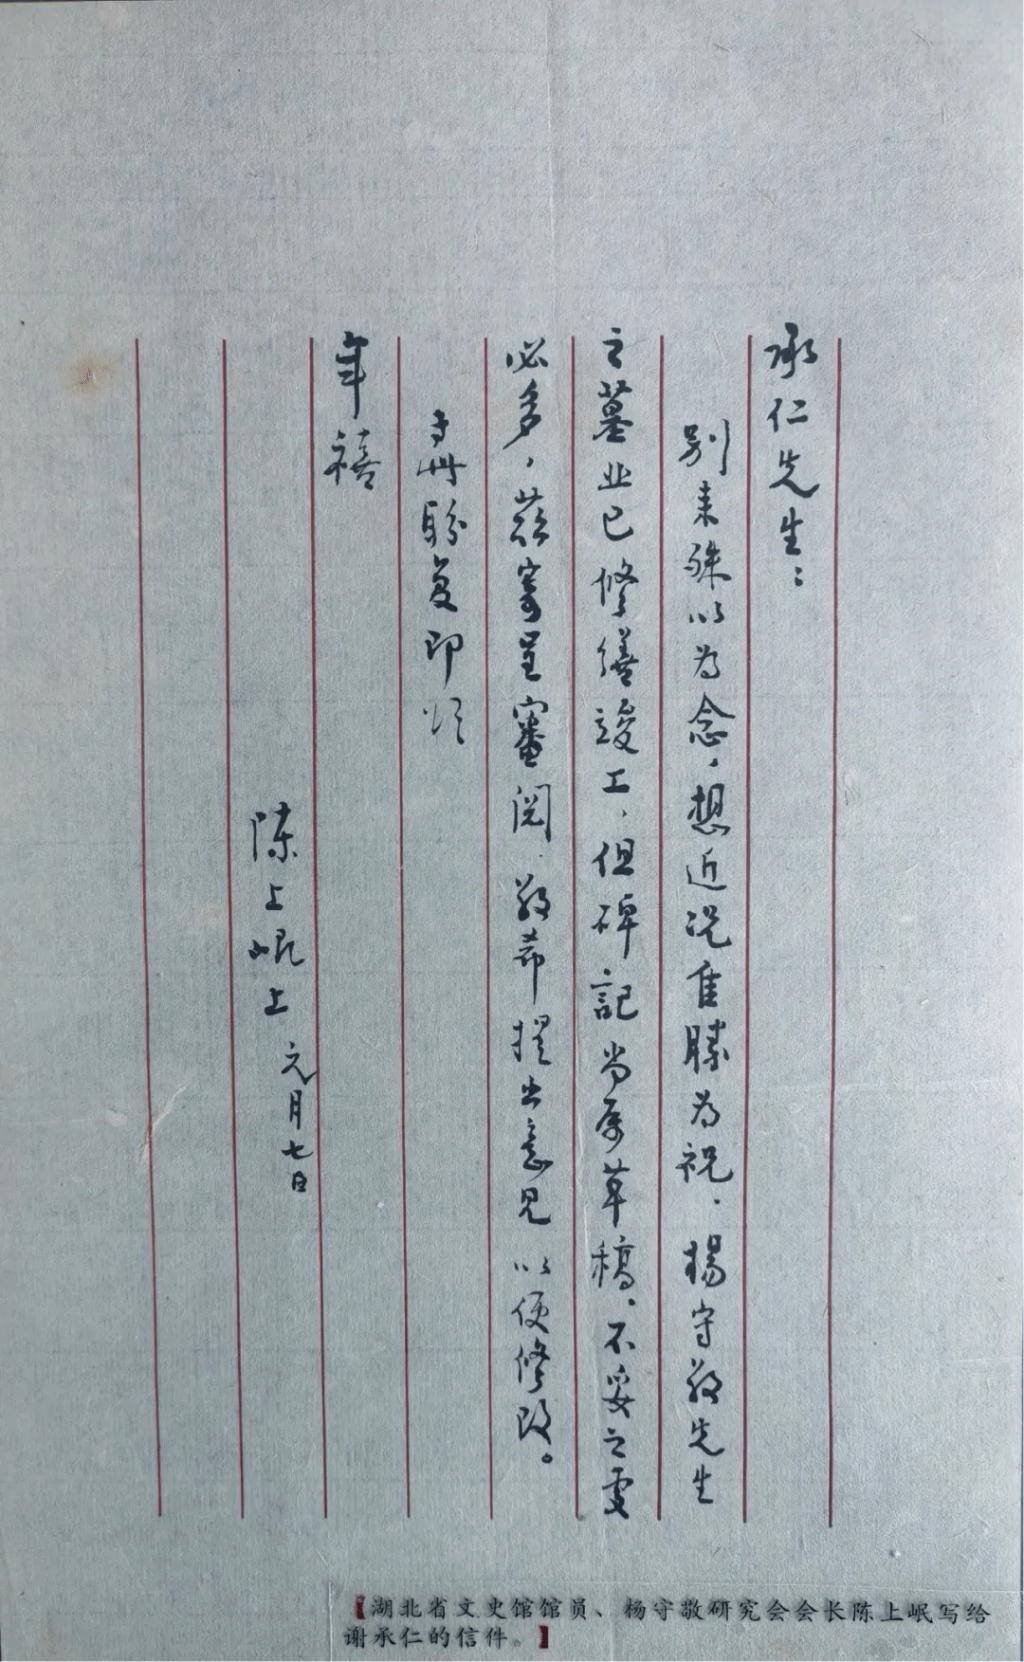 承仁先生：
别来殊以为念，想近况佳勝为祝．楊守敬先生
之墓业已修缮竣工，但碑記尚属草稿．不妥之處
必多，兹寄呈審阅．敬希提出意见以便修改。
耑此盼复即颂
年禧
陈上岷上 元月七日
【湖北省文史馆馆员、杨守敬研究会会长陈上岷写给
谢承仁的信件。】